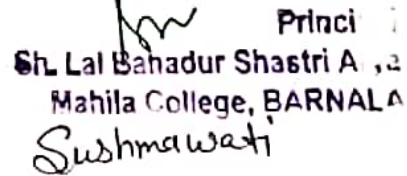 Princi
Sh. Lal Bahadur Shastri A
Mahila College, BARNALA
Sushmawati